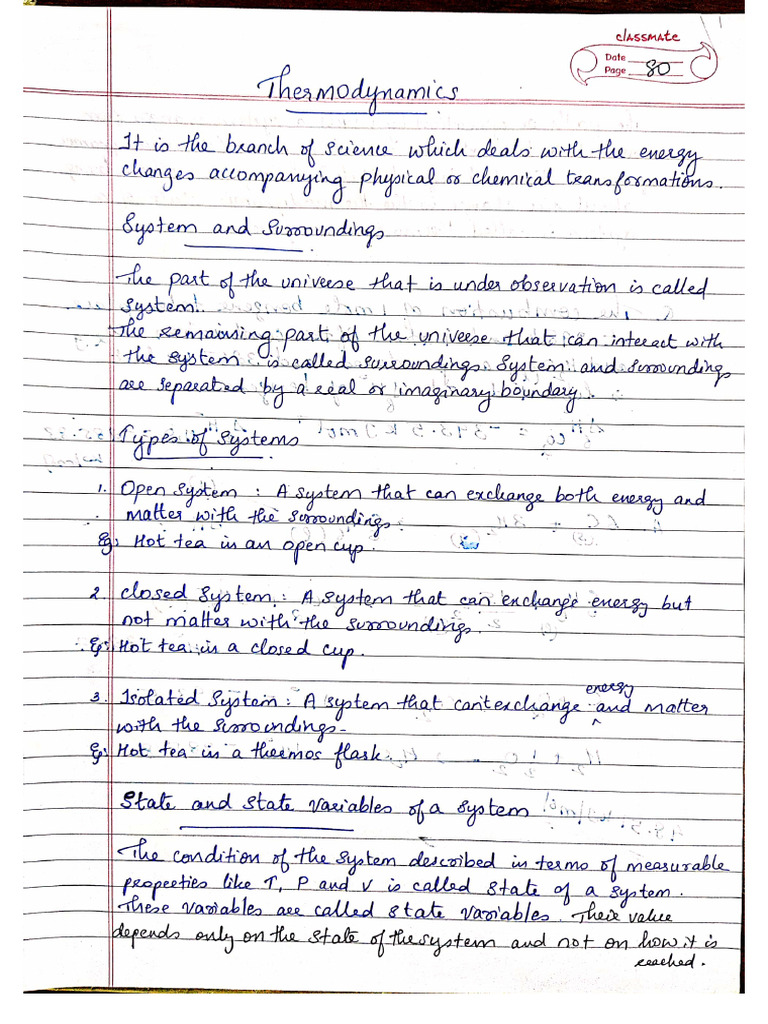 classmate
Date
Page 80
Thermodynamics
It is the branch of science which deals with the energy
changes accompanying physical or chemical transformations.
System and Surroundings
The part of the universe that is under observation is called
system.
The remaining part of the universe that can interact with
the system is called surroundings. System and surroundings
are separated by a real or imaginary boundary.
Types of Systems
1. Open System : A system that can exchange both energy and
matter with the surroundings.
Eg: Hot tea in an open cup.
2. Closed System : A system that can exchange energy but
not matter with the surroundings.
Eg: Hot tea in a closed cup.
3. Isolated System : A system that can't exchange energy and matter
with the surroundings.
Eg: Hot tea in a thermos flask.
State and State Variables of a System
The condition of the system described in terms of measurable
properties like T, P and V is called state of a system.
These variables are called state variables. Their value
depends only on the state of the system and not on how it is
reached.